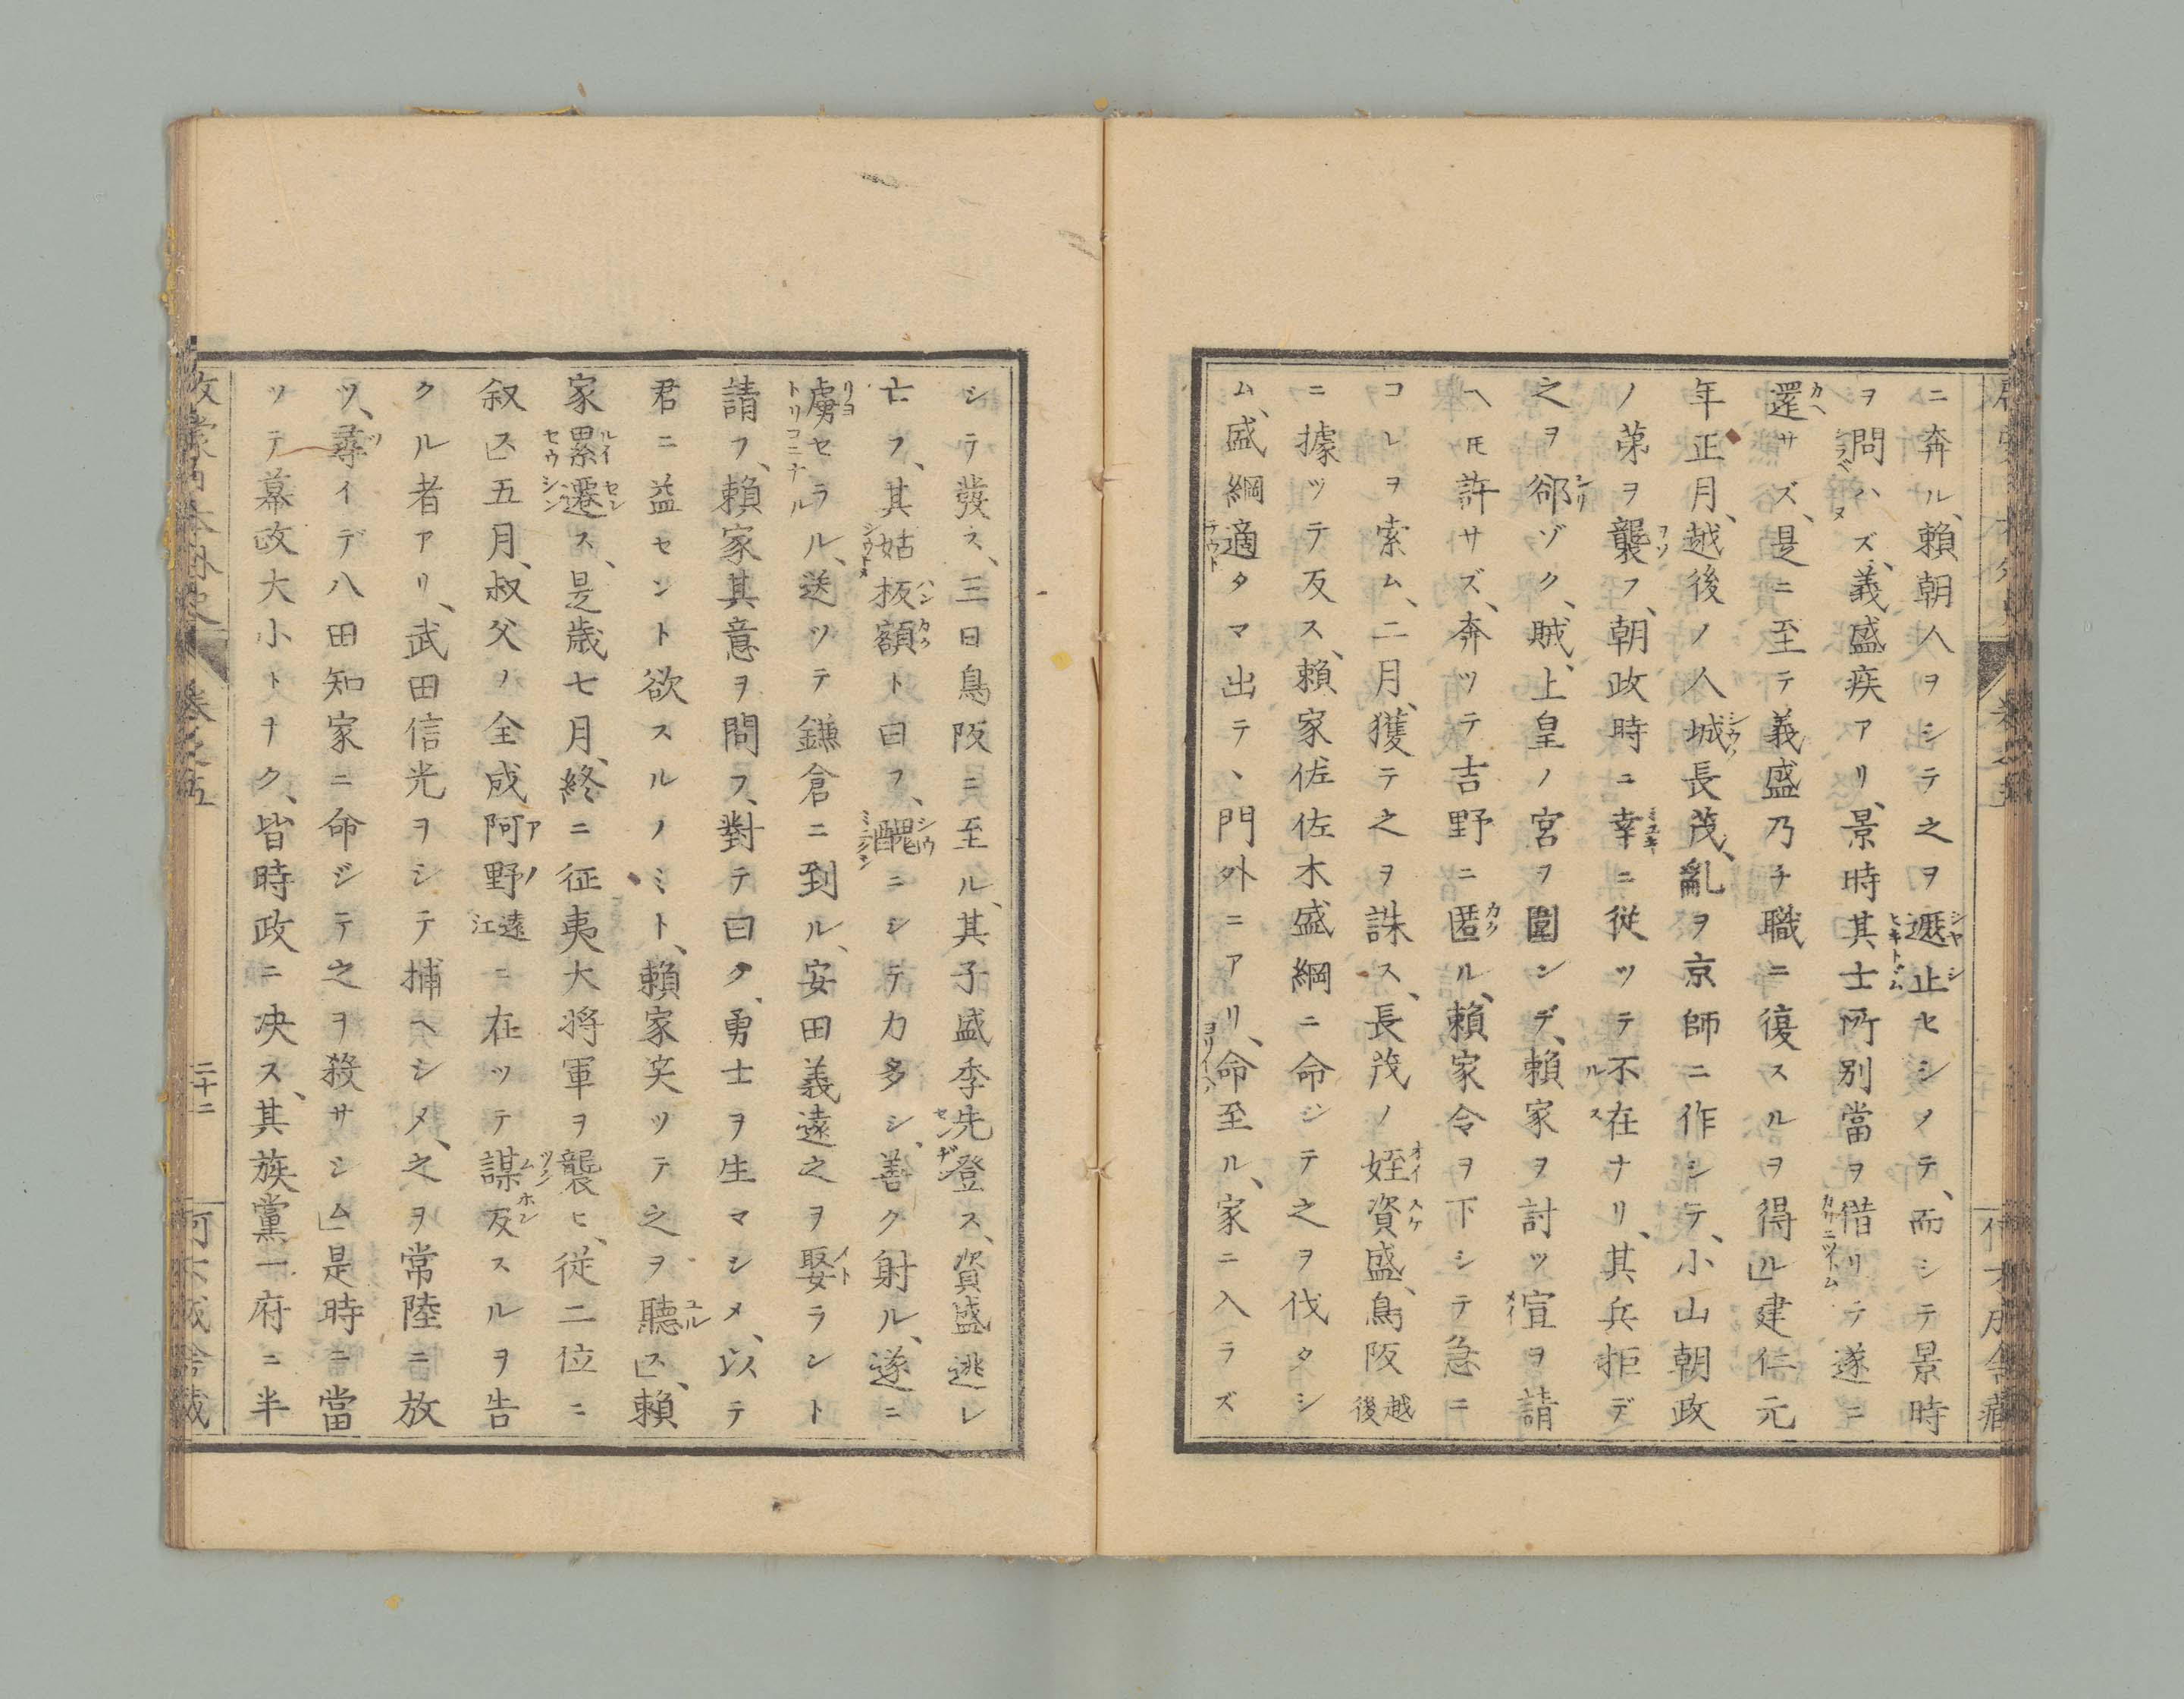 ニ奔ル、賴朝人ヲシテ之ヲ遮止セシノテ、而シテ景時
ヲ問ハズ、義盛疾アリ、景時其士所別當ヲ借リテ遂ニ
還サズ、是ニ至テ義盛乃チ職ニ復スルヲ得ル」建仁元
年正月、越後ノ人城長茂、亂ヲ京師ニ作シテ、小山朝政
ノ第ヲ襲フ、朝政時ニ幸ニ従ツテ不在ナリ、其兵拒デ
之ヲ郤ゾク、賊、上皇ノ宮ヲ圍ンデ、賴家ヲ討ツ宣ヲ請
ヘ𪜈許サズ、奔ツテ吉野ニ匿ル、賴家令ヲ下シテ急ニ
コレヲ索ム、二月、獲テ之ヲ誅ス、長茂ノ姪資盛、鳥阪越後
ニ據ツテ反ス、賴家佐佐木盛綱ニ命ジテ之ヲ伐タシ
ム、盛綱適タマ出テ、門外ニアリ、命至ル、家ニ入ラズ
シテ發ス、三日鳥阪ニ至ル、其子盛季先登ス、資盛逃レ
亡フ、其姑扳額ト曰フ、醜ニシテ力多シ、善ク射ル、遂ニ
虜セラル、送ツテ鎌倉ニ到ル、安田義遠之ヲ娶ラント
請フ、賴家其意ヲ問フ、對テ曰ク、勇士ヲ生マシメ、以テ
君ニ益セント欲スルノミト、賴家笑ツテ之ヲ聽ス」、賴
家累遷ス、是歳七月、終ニ征夷大将軍ヲ襲ヒ、従二位ニ
叙ス」五月、叔父ノ全成阿野遠江ニ在ツテ謀反スルヲ告
クル者アリ、武田信光ヲシテ捕ヘシメ、之ヲ常陸ニ放
ツ、尋イデ八田知家ニ命ジテ之ヲ殺サシム」是時ニ當
ツテ幕政大小トナク、皆時政ニ决ス、其族黨一府ニ半
卷之五
二十二